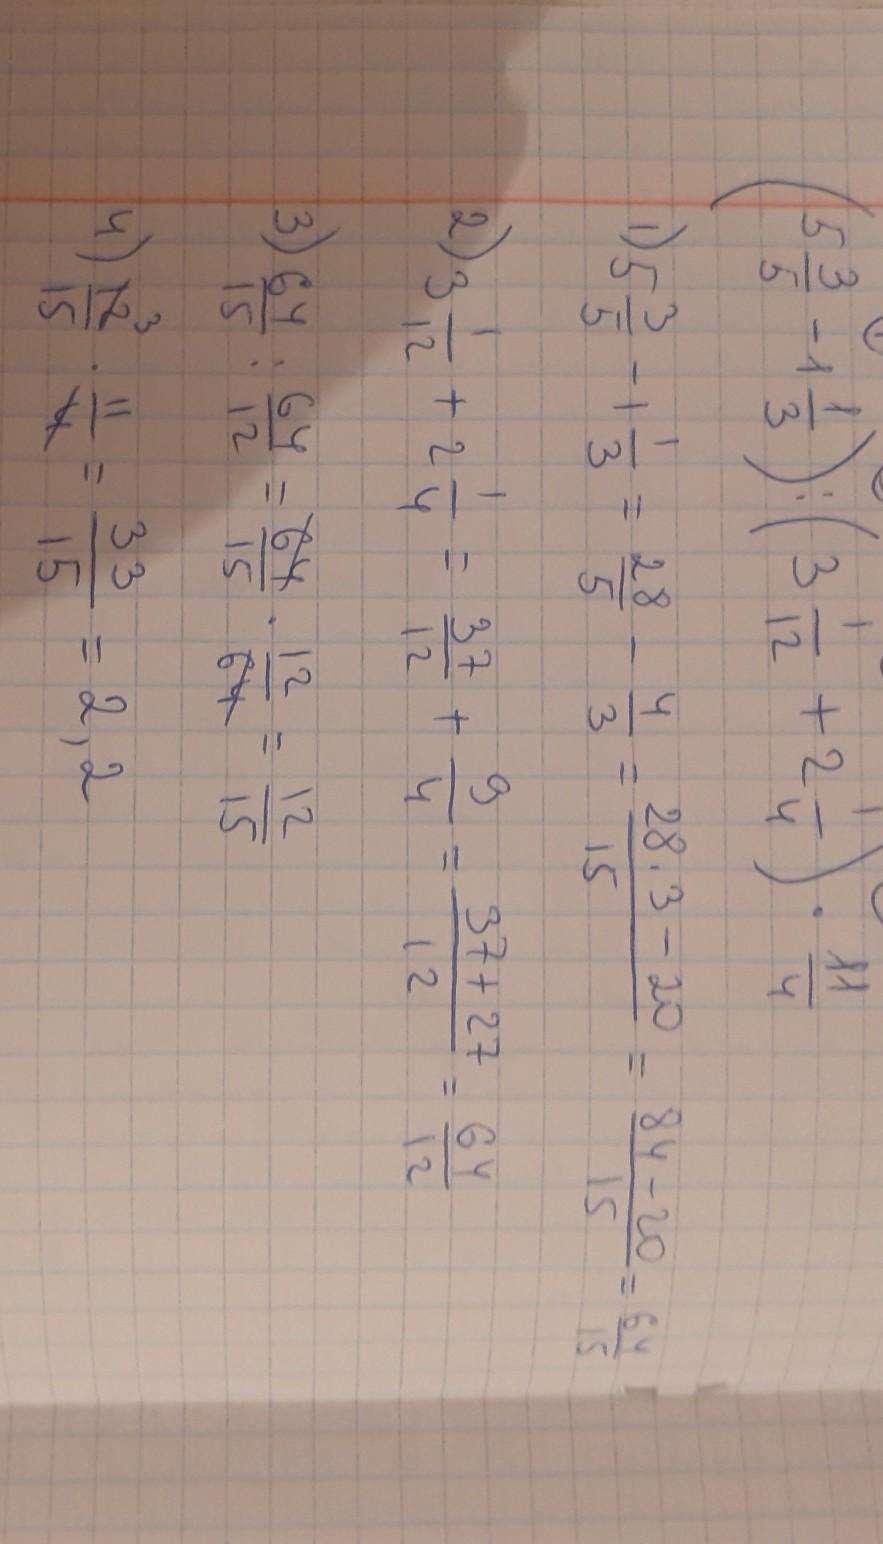 (5 3/5 - 1 1/3) : (3 1/12 + 2 1/4) · 11/4
1) 5 3/5 - 1 1/3 = 28/5 - 4/3 = 28·3-20/15 = 84-20/15 = 64/15
2) 3 1/12 + 2 1/4 = 37/12 + 9/4 = 37+27/12 = 64/12
3) 64/15 : 64/12 = 64/15 · 12/64 = 12/15
4) 12 3/15 · 11/4 = 33/15 = 2,2